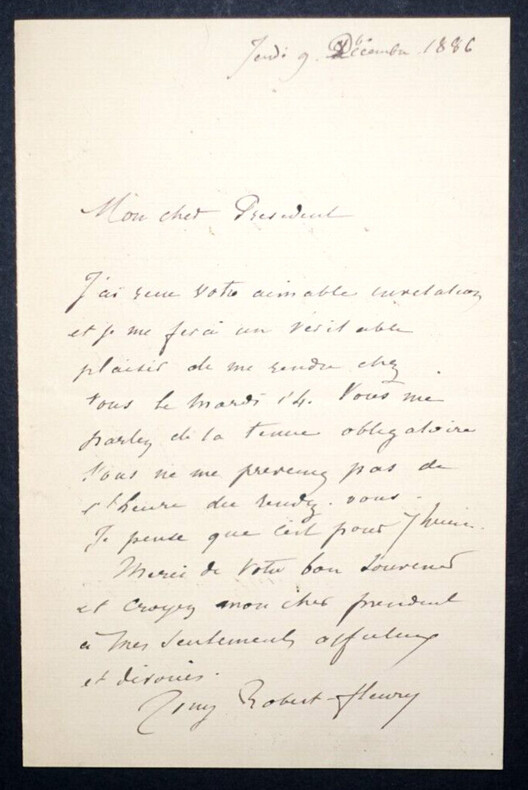 Jeudi 9 Décembre 1886
Mon cher President
J'ai reçu votre aimable invitation
et je me ferai un véritable
plaisir de me rendre chez
vous le mardi 14. Vous me
parlez de la tenue obligatoire
Vous ne me prevenez pas de
l'heure du rendez-vous.
Je pense que c'est pour 7 heures.
Merci de votre bon souvenir
et croyez mon cher president
à mes sentiments affectueux
et dévoués.
Tony Robert-Fleury